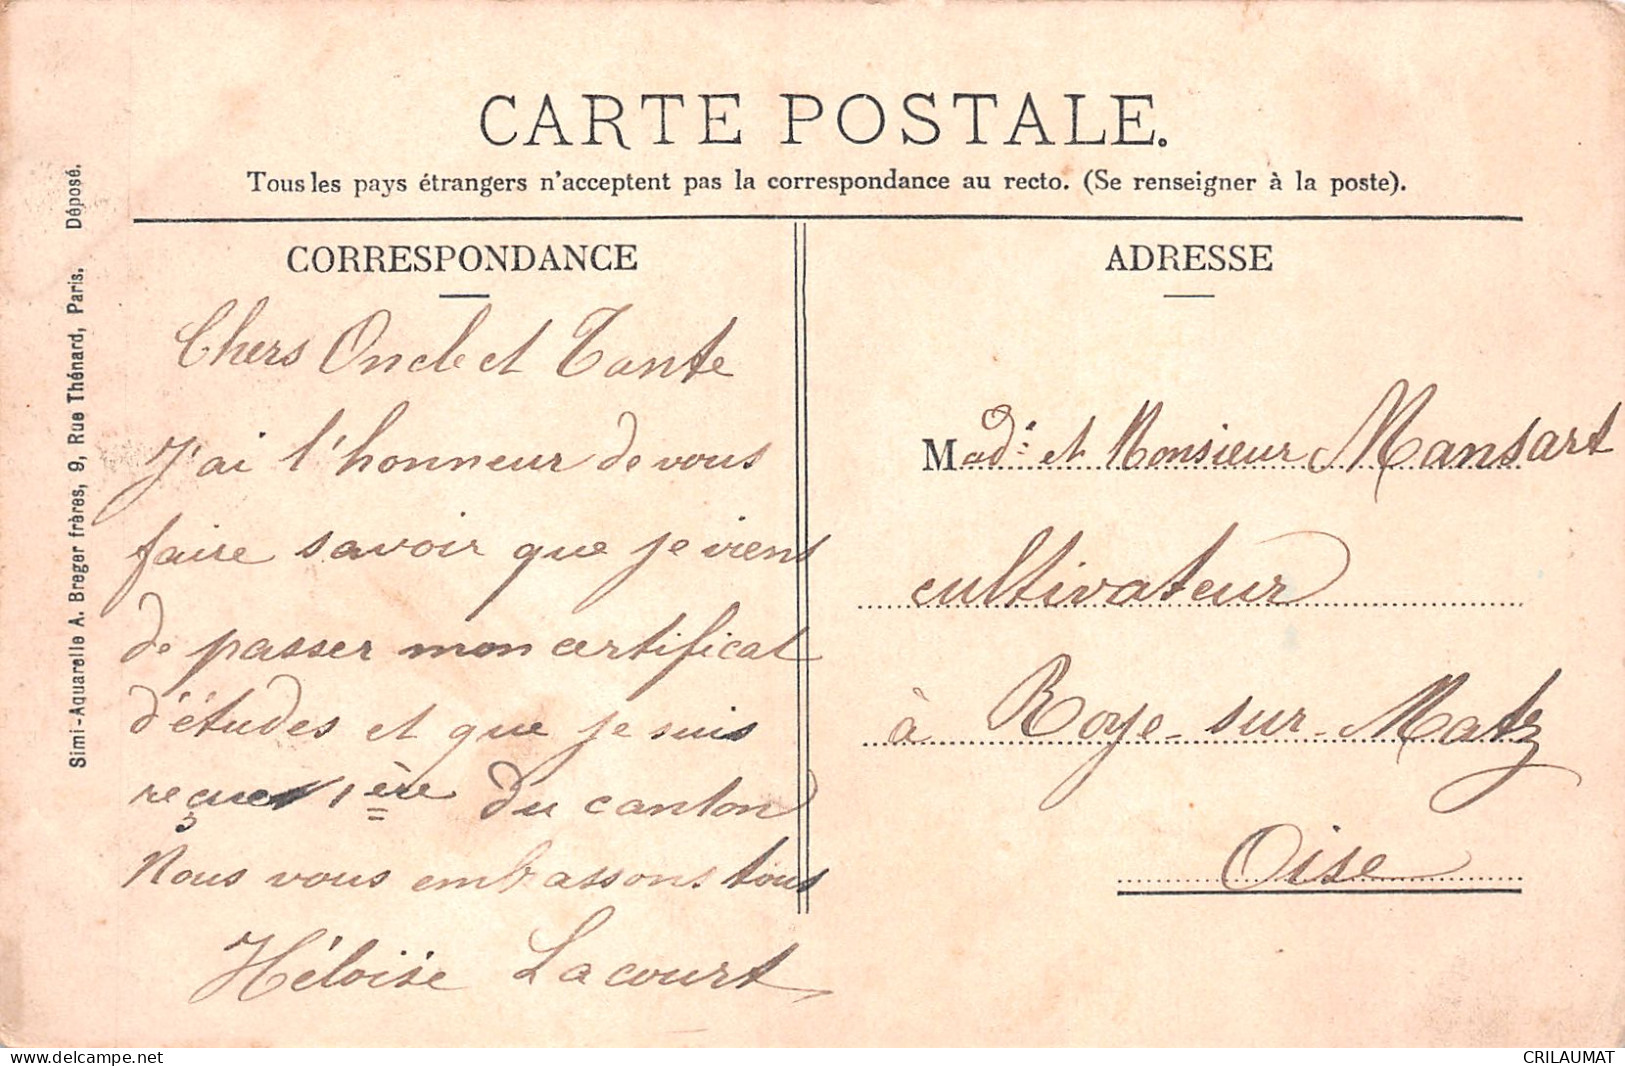 CARTE POSTALE.
Tous les pays étrangers n'acceptent pas la correspondance au recto. (Se renseigner à la poste).
CORRESPONDANCE
Chers Oncle et Tante
J'ai l'honneur de vous
faire savoir que je viens
de passer mon certificat
d'études et que je suis
reçue 1ère du canton
Nous vous embrassons tous
Héloïse Lacourt
ADRESSE
Made et Monsieur Mansart
cultivateur
à Roye-sur-Matz
Oise
Simi-Aquarelle A. Breger frères, 9, Rue Thénard, Paris. Déposé.
delcampe.net
CRILAUMAT